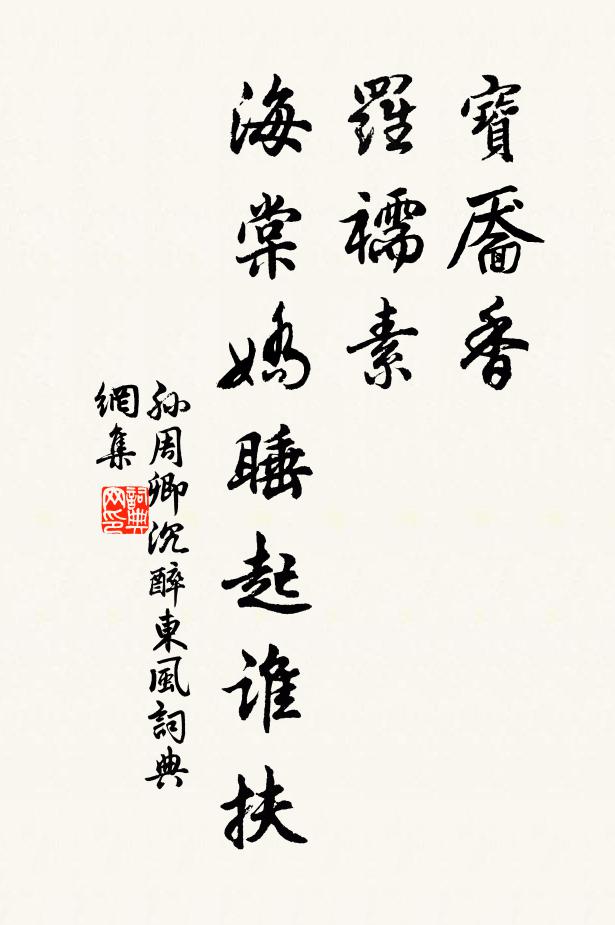 寶靨香
羅襦素
海棠嬌睡起誰扶
孫周卿沉醉東風詞典
網集
詞典
网印